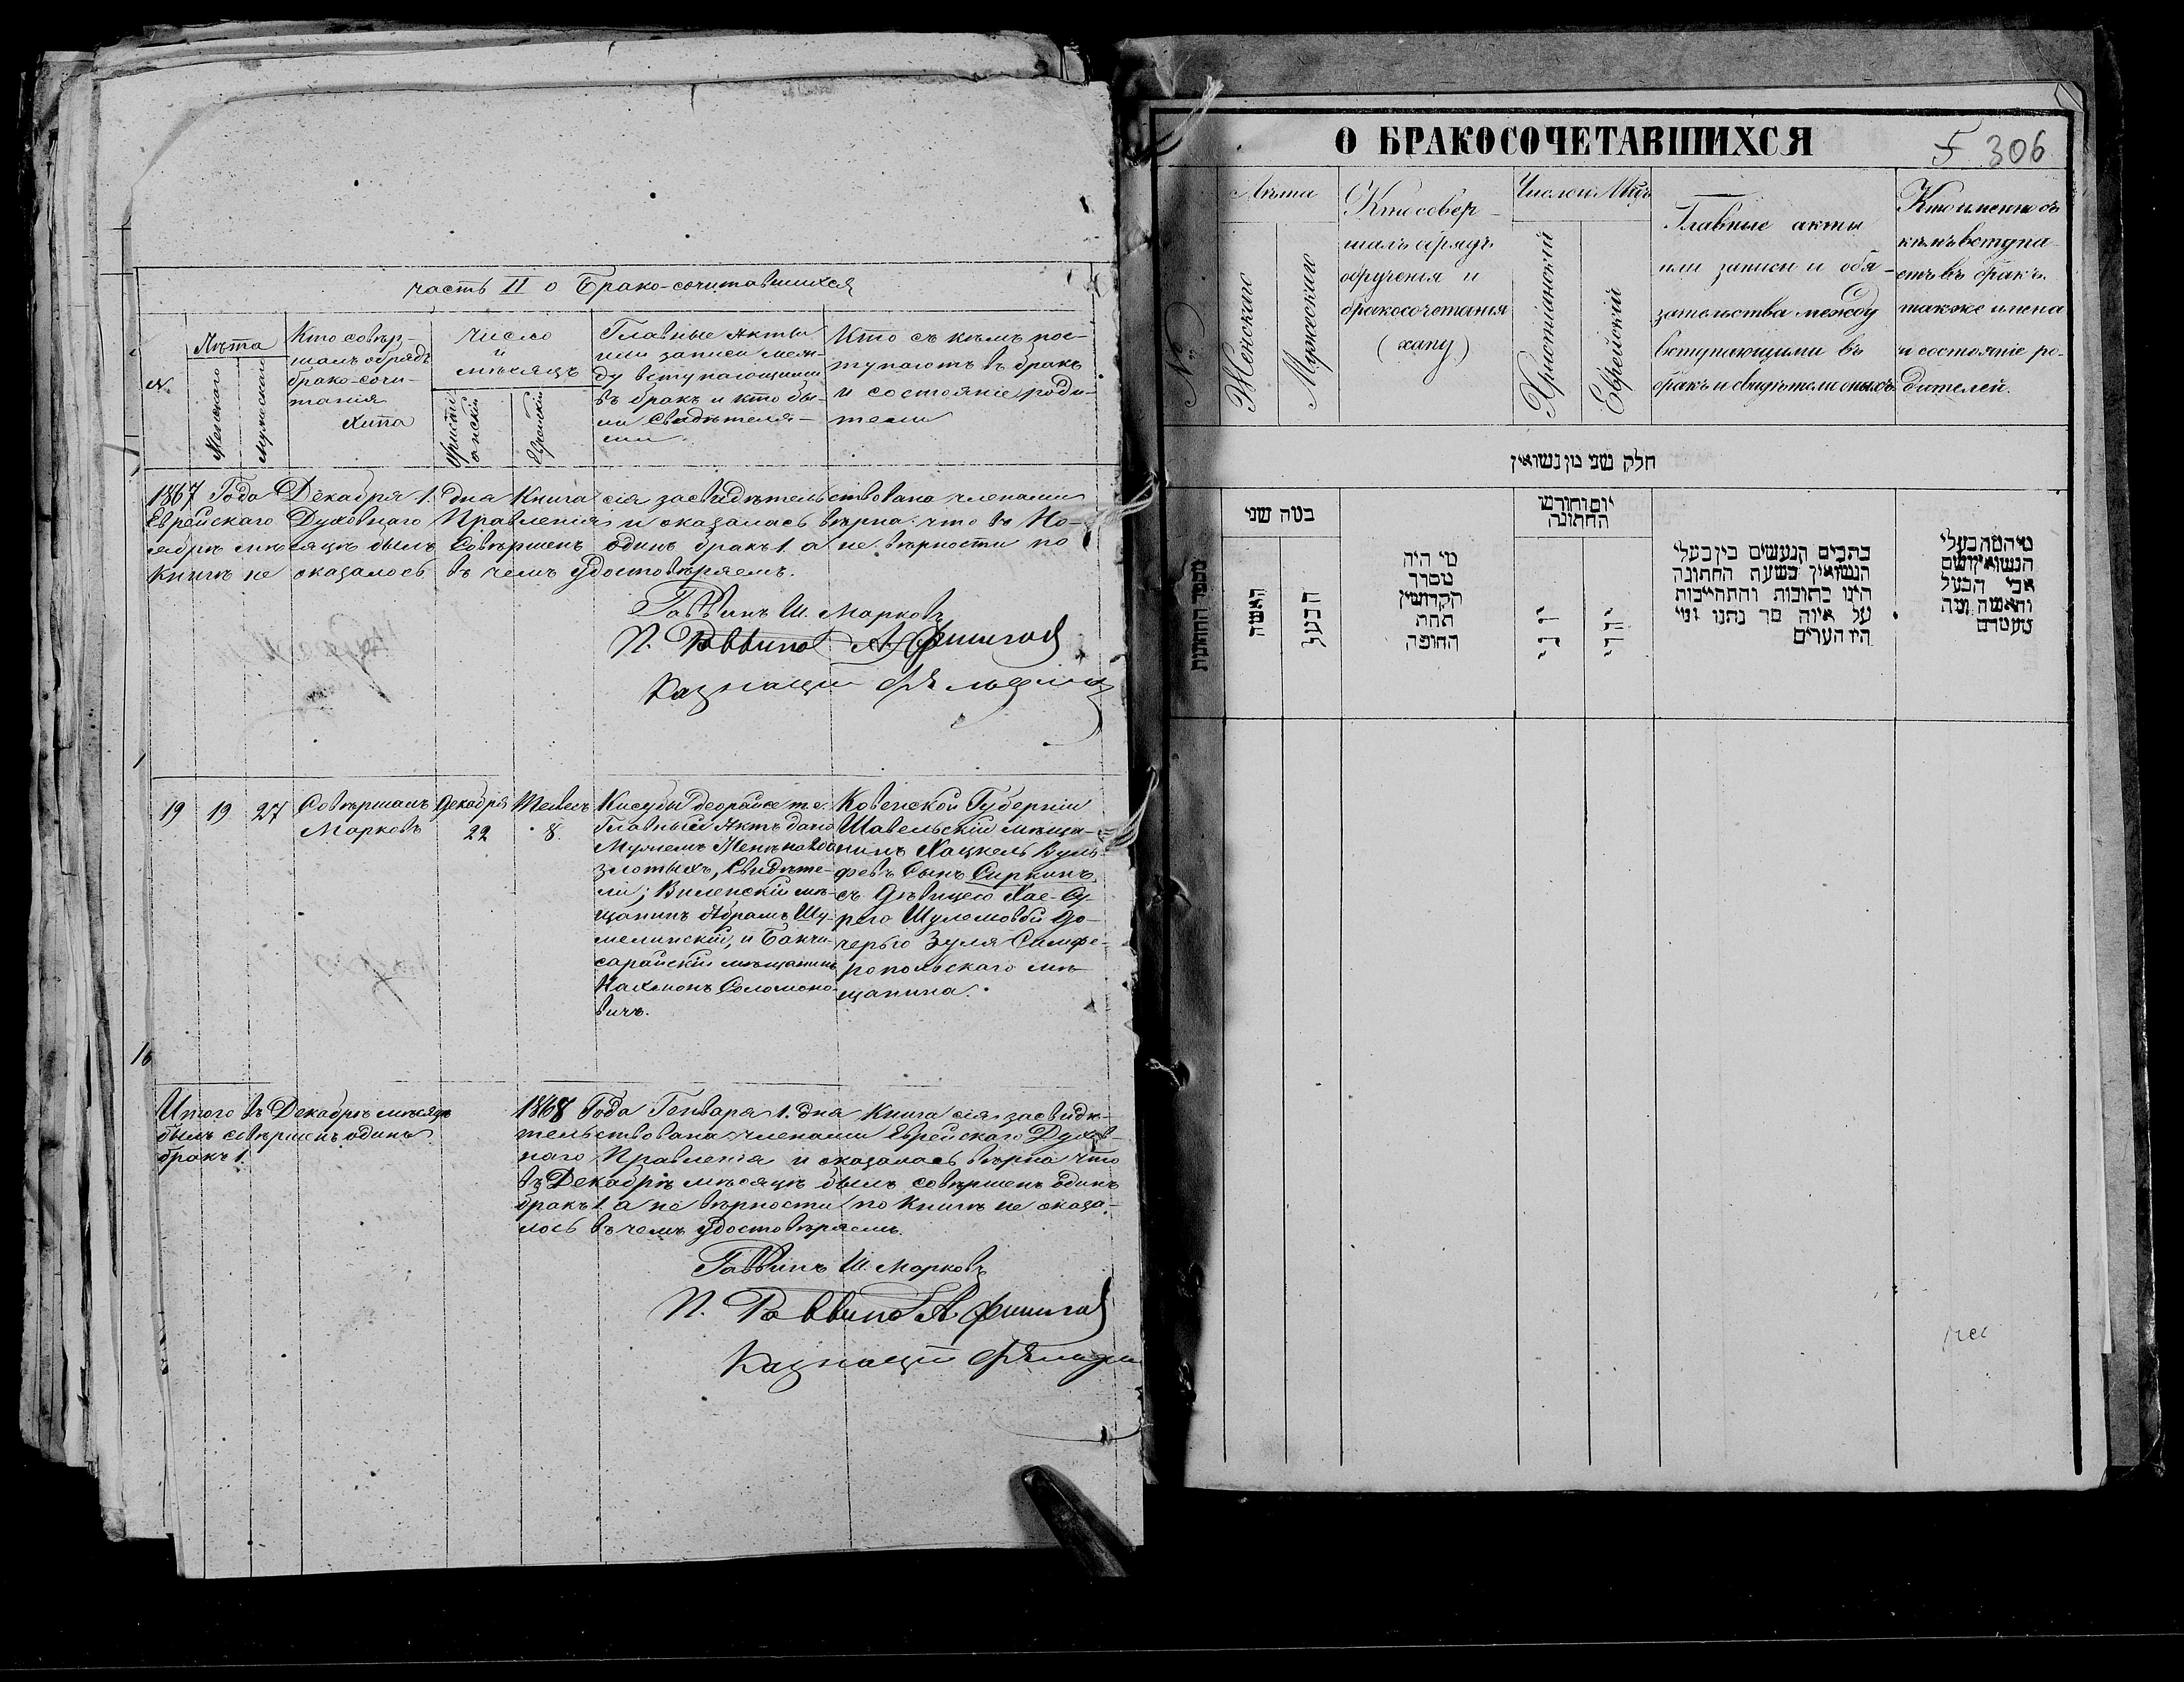 часть II о Брако-сочитавшихся
№
Лѣта
Женскаго
Мужескаго
Кто совѣр-
шалъ обрядъ
брако-сочи-
танія
хипа
Число
и
мѣсяцъ
Христі
анскій
Еврейскій
Главные Акты
или записи меж-
ду вступающими
въ бракъ и кто бы-
ли Свидѣтеля-
ми
Кто съ кѣмъ пос-
тупаютъ въ бракъ
и состояніе роди-
тели
1867 Года Декабря 1. дня Книга сія засвидѣтельствована членами
Еврейскаго Духовнаго Правленія и оказалась вѣрна что въ Но-
ябрѣ мѣсяцѣ былъ Совѣршенъ одинъ бракъ 1. а не вѣрности по
книгѣ не оказалось въ чемъ удостовѣряемъ.
Раввинъ Ш. Марковъ
П. Раввина А. Фишгод
Казначей
19
19
27
Совѣршалъ
Марковъ
Декабря
22
Тевесъ
8.
Кисубы деорайсе т. е.
Главный Актъ дано
Мужемъ Женѣ на 200
злотыхъ, Свидѣте-
ли; Виленскій мѣ-
щанинъ Абрамъ Шу-
мелинскій, и Бахчи-
сарайскій мѣщанинъ
Нахмонъ Соломоно-
вичъ.
Ковенской Губерніи
Шавельскій мѣща-
нинъ Хацкель Вуль-
фовъ Сынъ Сиркинъ
съ Дѣвицею Хае-Су-
рою Шулемовой до-
черью Зуля Симфе-
ропольскаго мѣ-
щанина.
16
Итого въ Декабрѣ мѣсяцѣ
былъ совѣршенъ одинъ
бракъ 1
1868 Года Генваря 1. дня Книга сія засвидѣ-
тельствована членами Еврейскаго Духов-
наго Правленія и оказалась вѣрна что
въ Декабрѣ мѣсяцѣ былъ совѣршенъ одинъ
бракъ 1. а не вѣрности по книгѣ не оказа-
лось въ чемъ удостовѣряемъ.
Раввинъ Ш. Марковъ
П. Раввина А. Фишгод
Казначей
О БРАКОСОЧЕТАВШИХСЯ
5 306
№
Лѣта
Женскаго
Мужескаго
Кто совер-
шалъ обрядъ
обрученія и
бракосочетанія
(хапу)
Число и Мцъ
Христіанскій
Еврейскій
Главные акты
или записи и обя-
зательства между
вступающими въ
бракъ и свидѣтели оныхъ
Кто именно съ
кѣмъ вступа-
етъ въ бракъ
также имена
и состояніе ро-
дителей.
חלק שני מן נשואין
מספר החתונות
במה שני
האשה
הבעל
מי היה
מסדר
הקדושין
תחת
החופה
יום וחודש
החתונה
יוני
יהודי
כתבים הנעשים בין בעלי
הנשואין בשעת החתונה
היינו כתובות והתחייבות
על איזה סך נתנו ומי
היו העדים
מי המה בעלי
הנשואין ושם
אבי הבעל
והאשה ומה
מעמדם